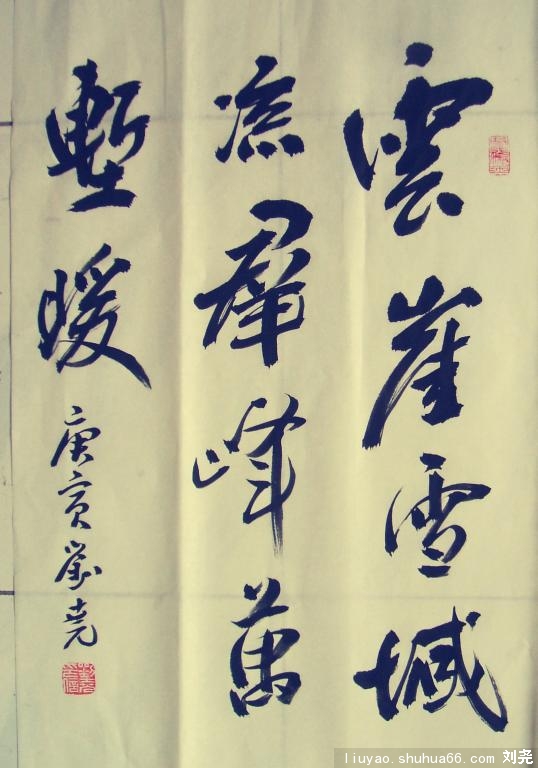 雲崖雪域
凉羣峰萬
壑暖
庚寅劉尧
liuyao.shuhua66.com 刘尧